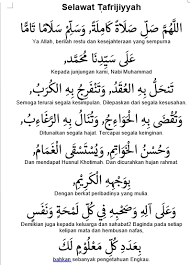 Selawat Tafrijiyyah
اللَّهُمَّ صَلِّ صَلَاةً كَامِلَةً، وَسَلِّمْ سَلَامًا تَامًّا
Ya Allah, berilah restu dan kesejahteraan yang sempurna
عَلَى سَيِّدِنَا مُحَمَّدٍ،
Kepada junjungan kami, Nabi Muhammad
تَنْحَلُّ بِهِ الْعُقَدُ، وَتَنْفَرِجُ بِهِ الْكُرَبُ،
Semoga terurai segala kesimpulan. Dilepaskan dari segala kesusahan.
وَتُقْضَى بِهِ الْحَوَائِجُ، وَتُنَالُ بِهِ الرَّغَائِبُ،
Ditunaikan segala hajat. Tercapai segala keinginan.
وَحُسْنُ الْخَوَاتِمِ، وَيُسْتَسْقَى الْغَمَامُ
Dan mendapat Husnul Khotimah. Dan dicurahkan hujan rahmat
بِوَجْهِهِ الْكَرِيْمِ،
Dengan berkat peribadinya yang mulia.
وَعَلَى آلِهِ وَصَحْبِهِ فِي كُلِّ لَمْحَةٍ وَنَفَسٍ
Demikian juga kepada keluarga dan sahabat? Baginda pada setiap
kelipan mata dan hembusan nafas,
بِعَدَدِ كُلِّ مَعْلُوْمٍ لَكَ
bahkan sebanyak pengetahuan Engkau.